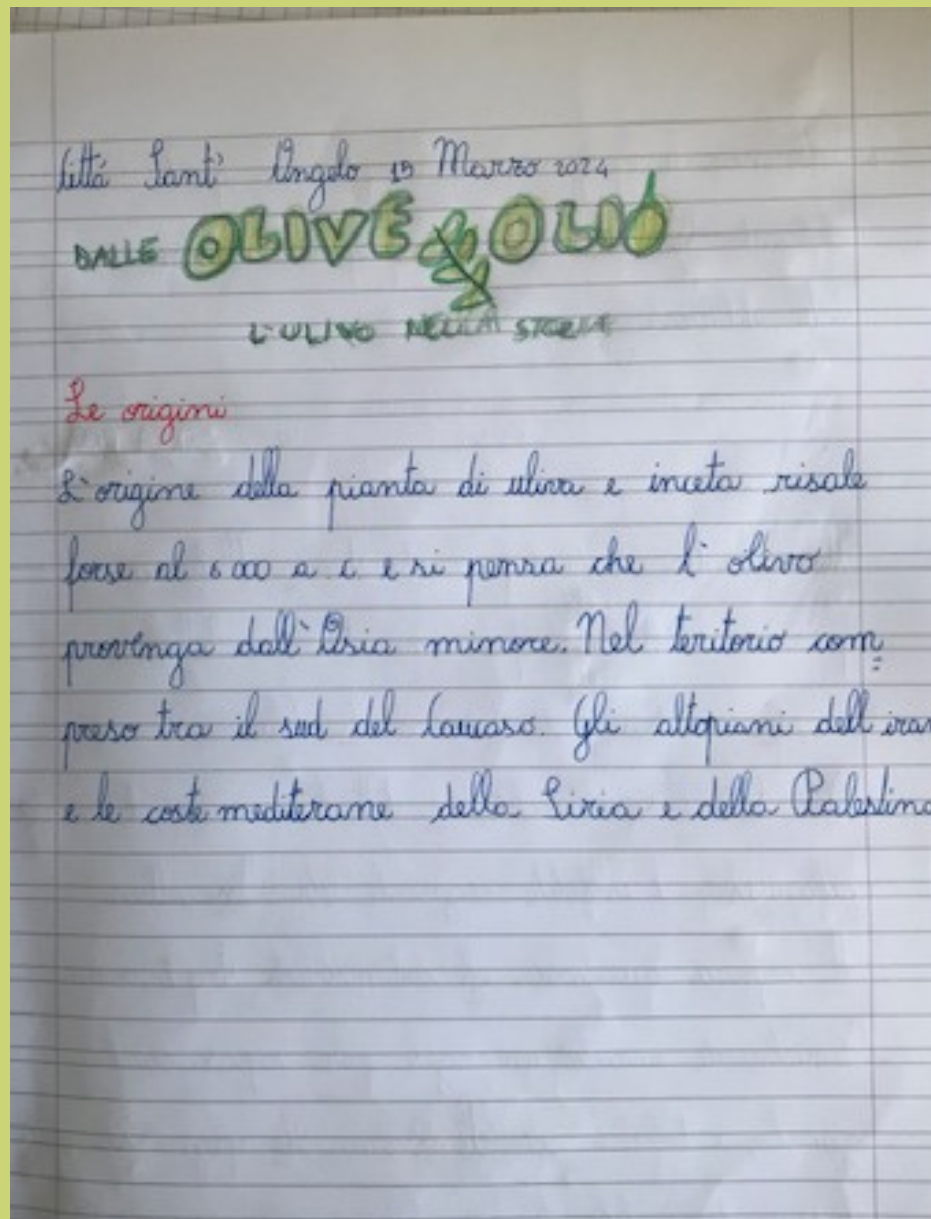 Cittá Sant' Angelo 15 Marzo 2024
DALLE OLIVE OLIO
L'ULIVO NELLA STORIA
Le origini
L'origine della pianta di uliva e inceta risale
forse al 6 000 a c e si pensa che l' olivo
provenga dall'Asia minore. Nel teritorio com=
preso tra il sud del Caucaso. Gli altopiani dell iran
e le coste mediterane della Siria e della Palestina